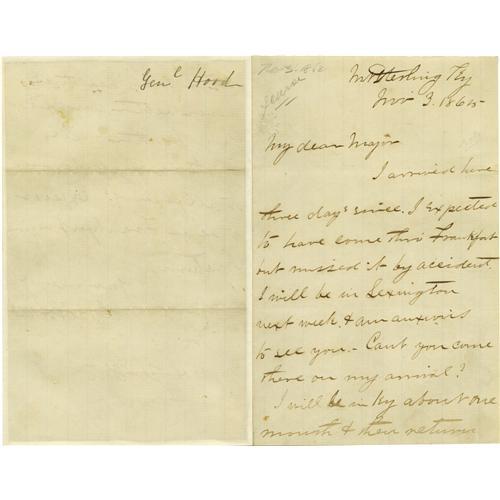 Genl Hood
Mt Sterling Ky
Nov 3. 1865
My dear Major
I arrived here
three days since. I expected
to have come thro Frankfort
but missed it by accident.
I will be in Lexington
next week & am anxious
to see you.- Cant you come
there on my arrival?
I will be in Ky about one
month & then return